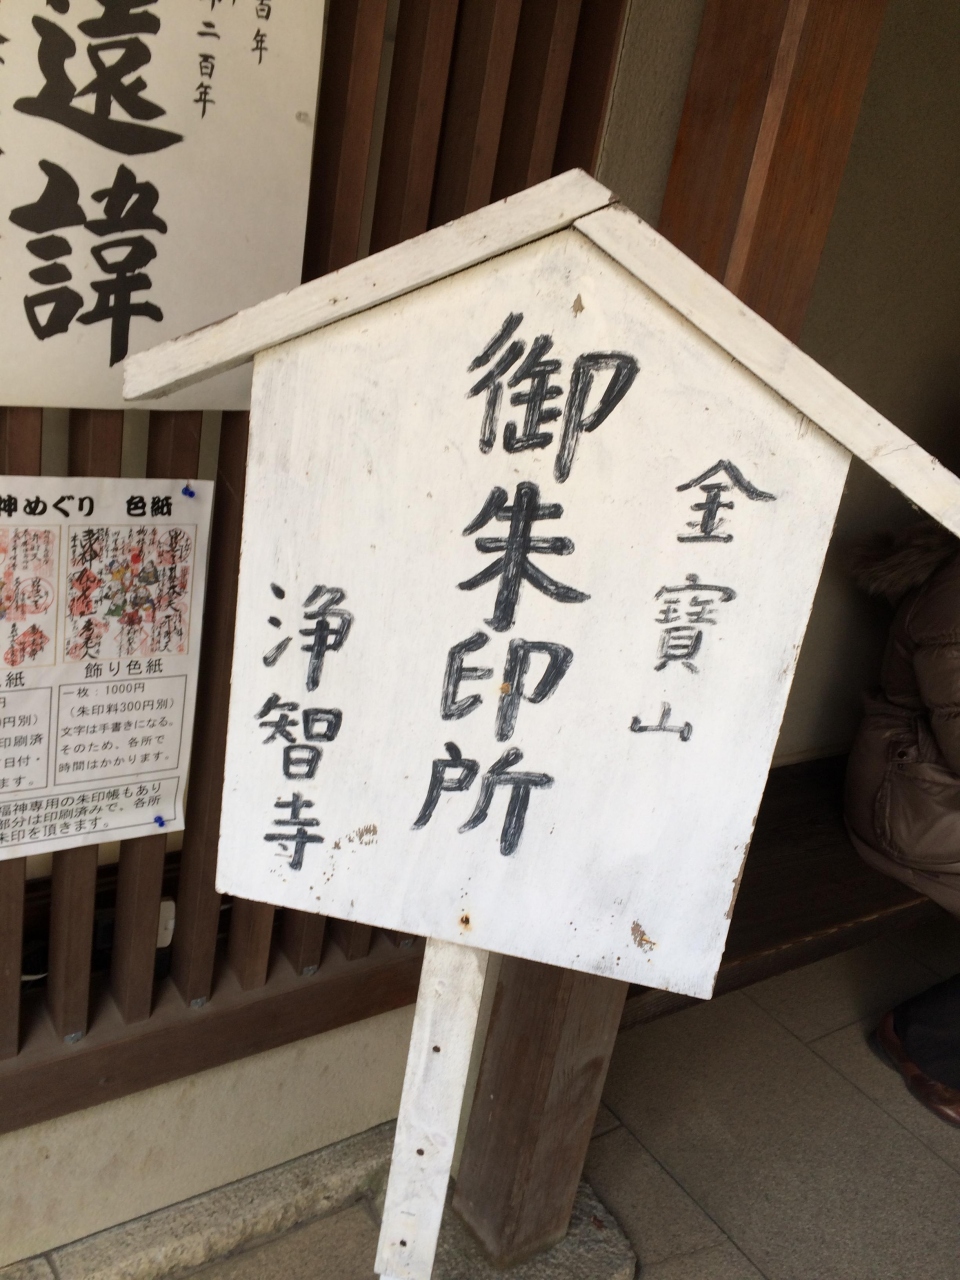 百年
二百年
遠
諱
金寶山
御朱印所
浄智寺
神めぐり 色紙
飾り色紙
色紙
一枚：1000円
（朱印料300円別）
文字は手書きになる。
そのため、各所で
時間はかかります。
円別）
印刷済
日付・
ます。
福神専用の朱印帳もあり
部分は印刷済みで、各所
朱印を頂きます。